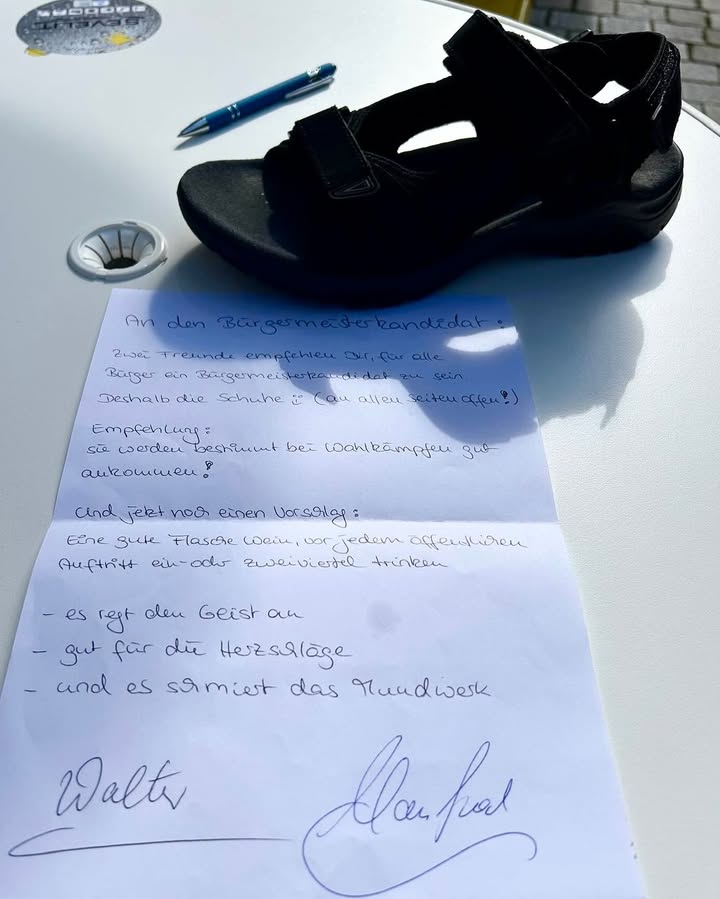 SEVEN
An den Bürgermeisterkandidat:
Zwei Freunde empfehlen Dir, für alle
Bürger ein Bürgermeisterkandidat zu sein
Deshalb die Schuhe (an allen Seiten offen!)
Empfehlung:
sie werden bestimmt bei Wahlkämpfen gut
ankommen!
Und jetzt noch einen Vorschlag:
Eine gute Flasche Wein, vor jedem öffentlichen
Auftritt ein- oder zweiviertel trinken
- es regt den Geist an
- gut für die Herzschläge
- und es schmiert das Mundwerk
Walter
Manfred